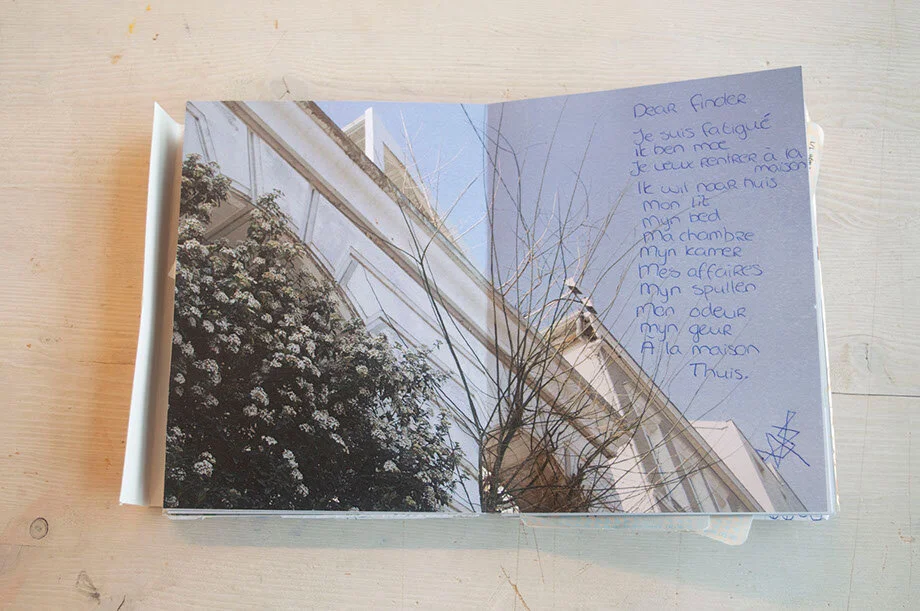 Dear finder
Je suis fatigué
ik ben moe
Je veux rentrer à la
maison
Ik wil naar huis
Mon lit
Myn bed
Ma chambre
Myn kamer
Mes affaires
Myn spullen
Mon odeur
Myn geur
À la maison
Thuis.